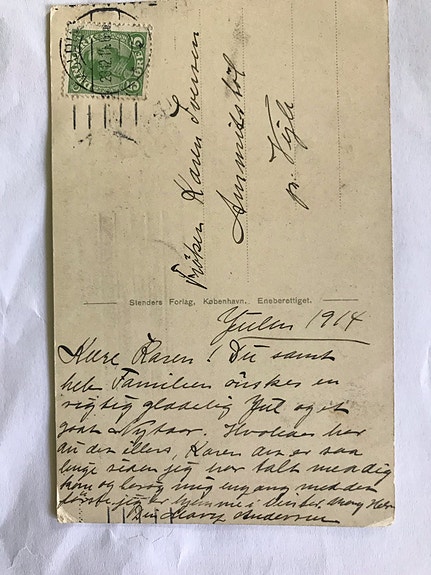 23.12.14
Frøken Karen Iversen
Ammitsbøl
pr. Vejle
Stenders Forlag, København. Eneberettiget.
Julen 1914
Kære Karen! Du samt
hele Familien ønskes en
rigtig glædelig Jul og et
godt Nytaar. Hvordan har
du det ellers, Karen det er saa
længe siden jeg har talt med dig
kom og besøg mig engang med det
første jeg er hjemme i Vinter. mang Hils
Din Mary Andersen